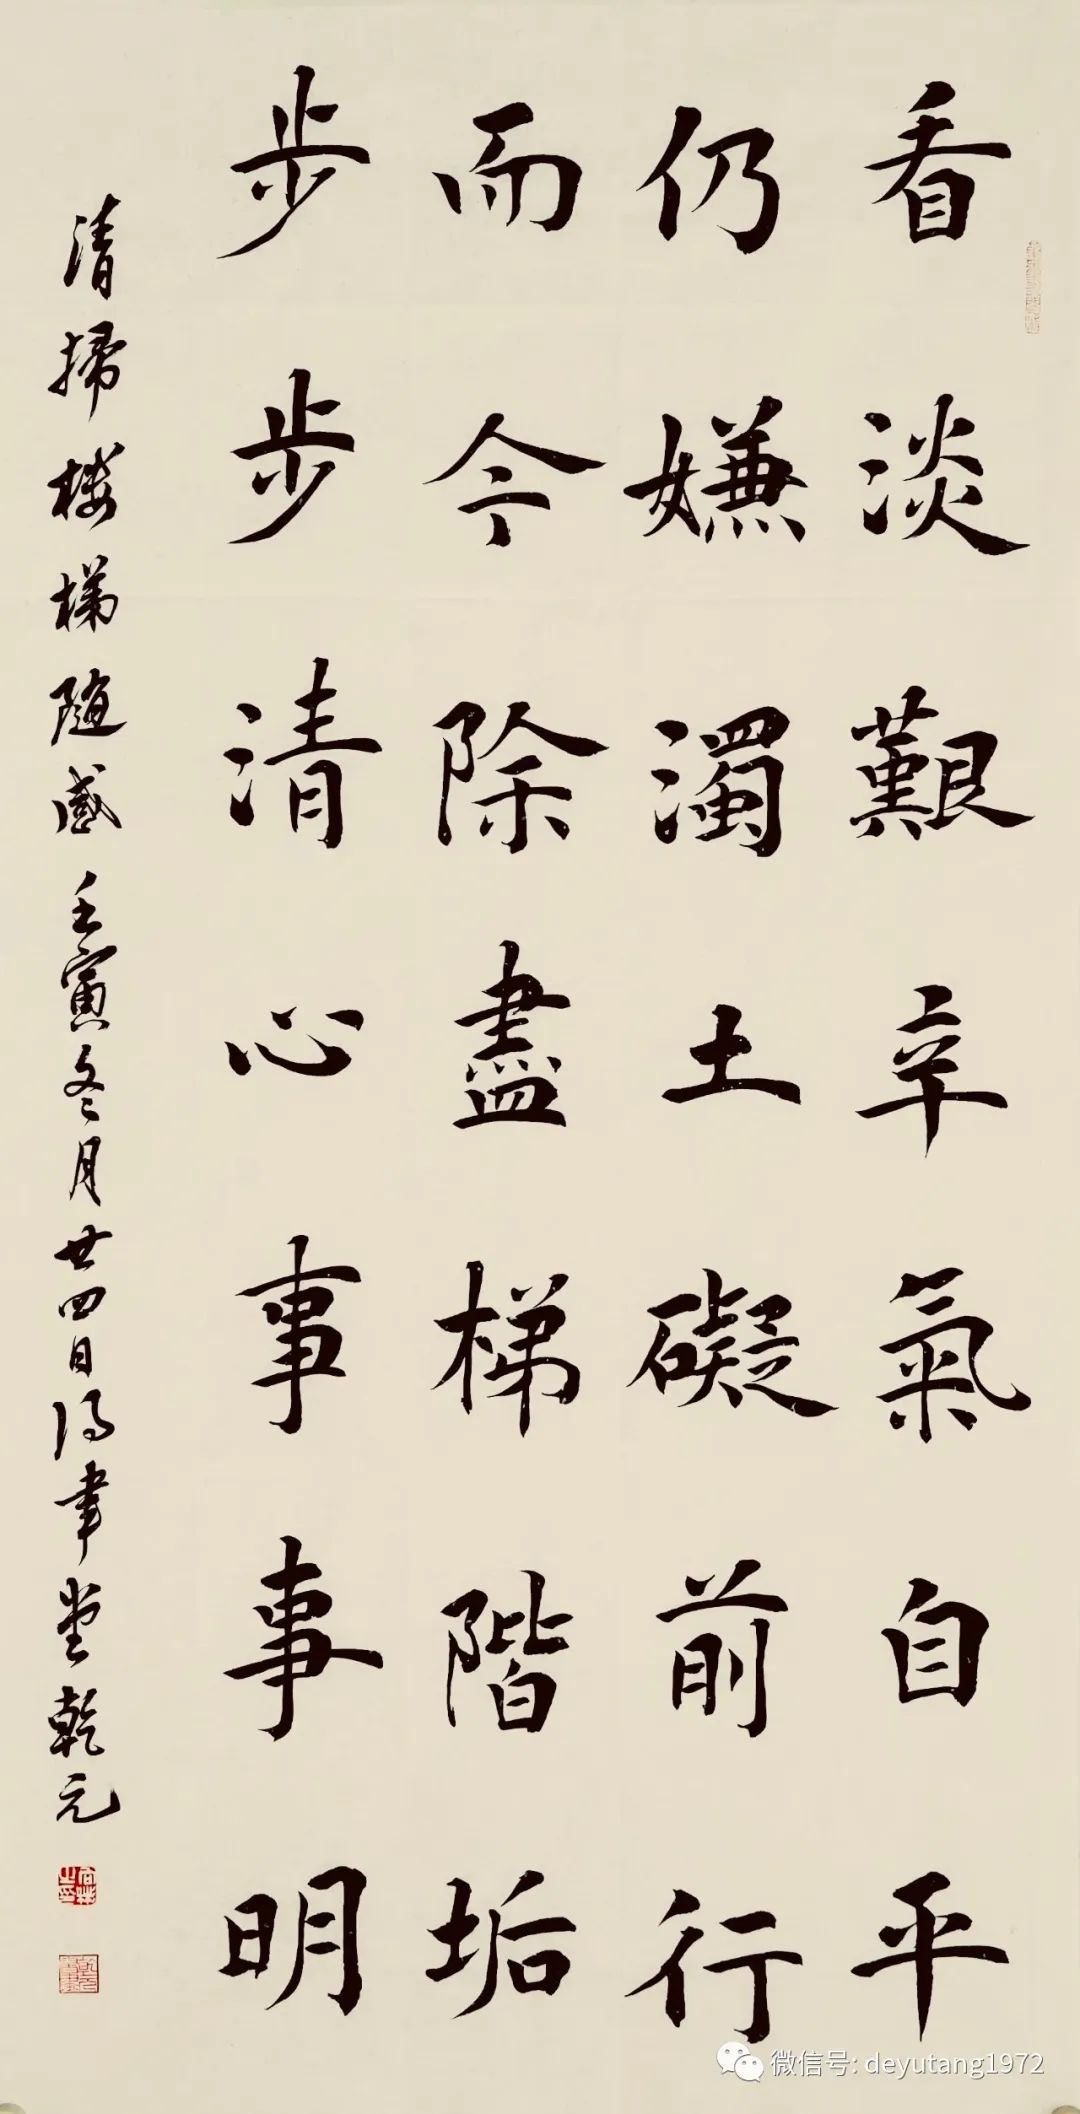 看淡艱辛氣自平
仍嫌濁土礙前行
而今除盡梯階垢
步步清心事事明
清掃楼梯隨感 壬寅冬月廿四日得聿堂乾元
微信号: deyutang1972